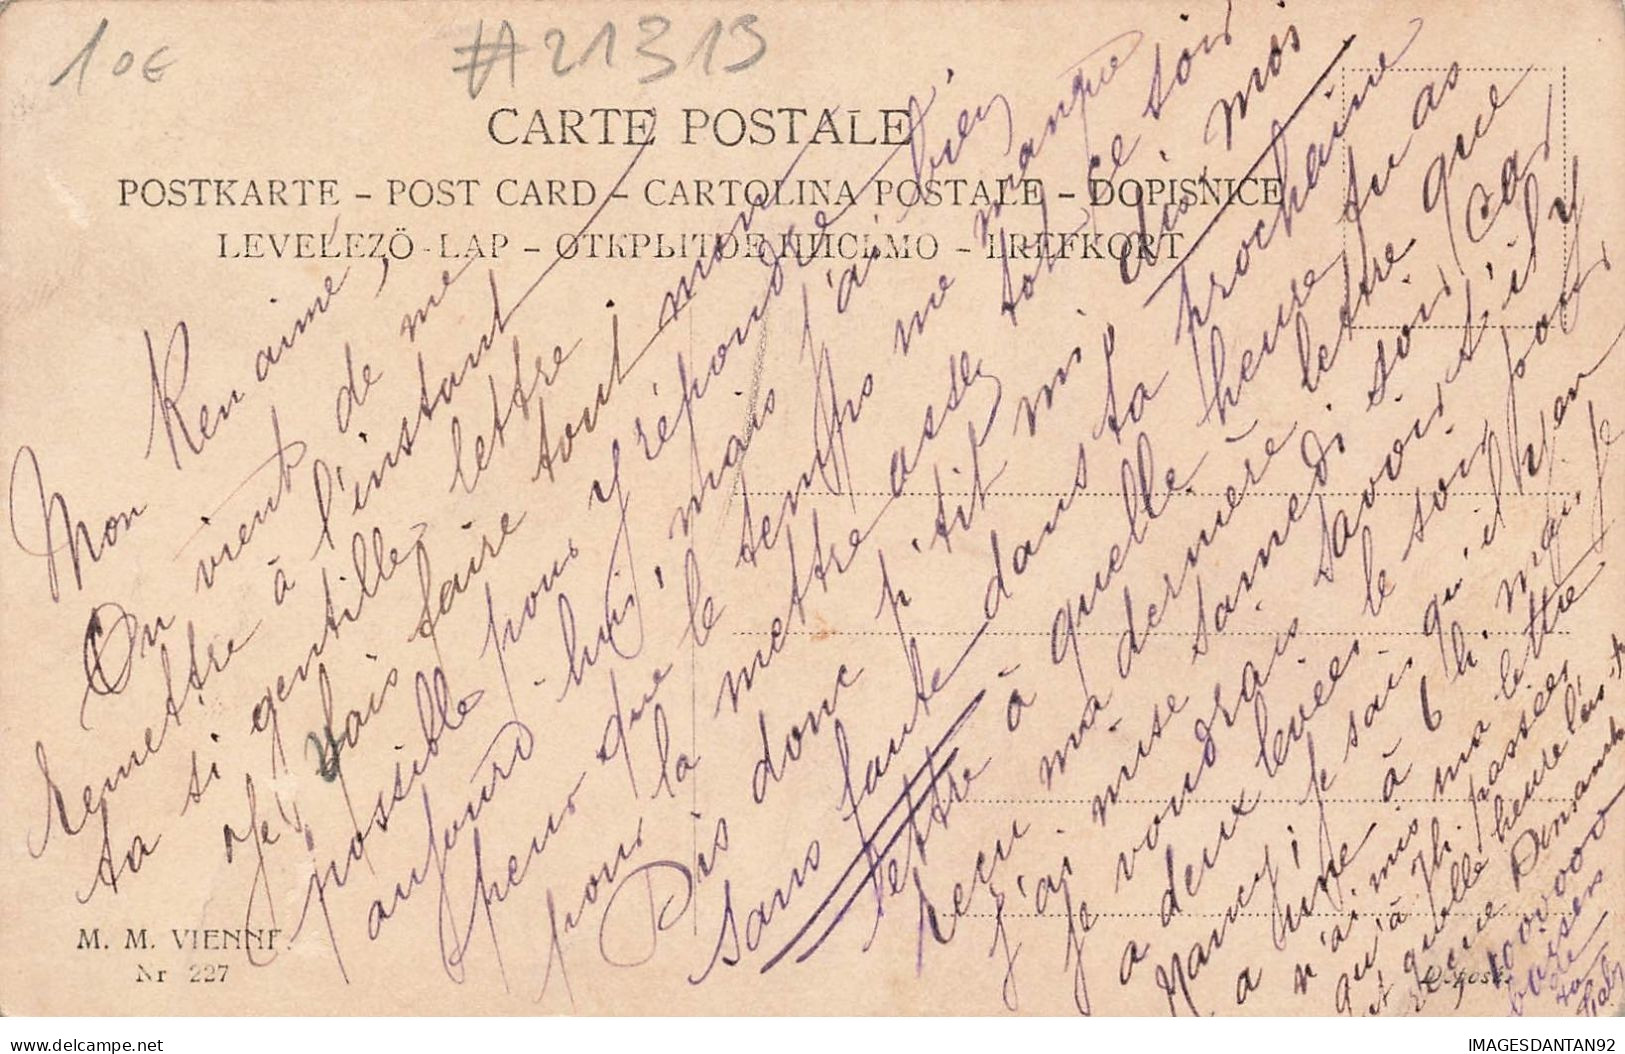 10€
#21319
CARTE POSTALE
POSTKARTE – POST CARD – CARTOLINA POSTALE – DOPISNICE
LEVELEZÖ-LAP – ОТКРЫТОЕ ПИСЬМО – BREFKORT
Mon Ren aimé,
On vient de me
remettre à l'instant
ta si gentille lettre
Je vais faire tout mon
possible pour y répondre
aujourd'hui, mais j'ai bien
peur que le temps me manque
pour la mettre assez tôt ce soir
Dis donc p'tit mi dis moi
sans faute dans ta prochaine
lettre à quelle heure tu as
reçu ma dernière lettre que
j'ai mise samedi soir car
je voudrais savoir s'il y
a deux levées le soir pour
Nancy; je sais qu'il y en
a une à 6 h. mais je
n'ai mis ma lettre
qu'à 7h. passées
et quelle heure
M. M. VIENNE.
Nr 227
1000000
baisers
de
ta
IMAGESDANTAN92